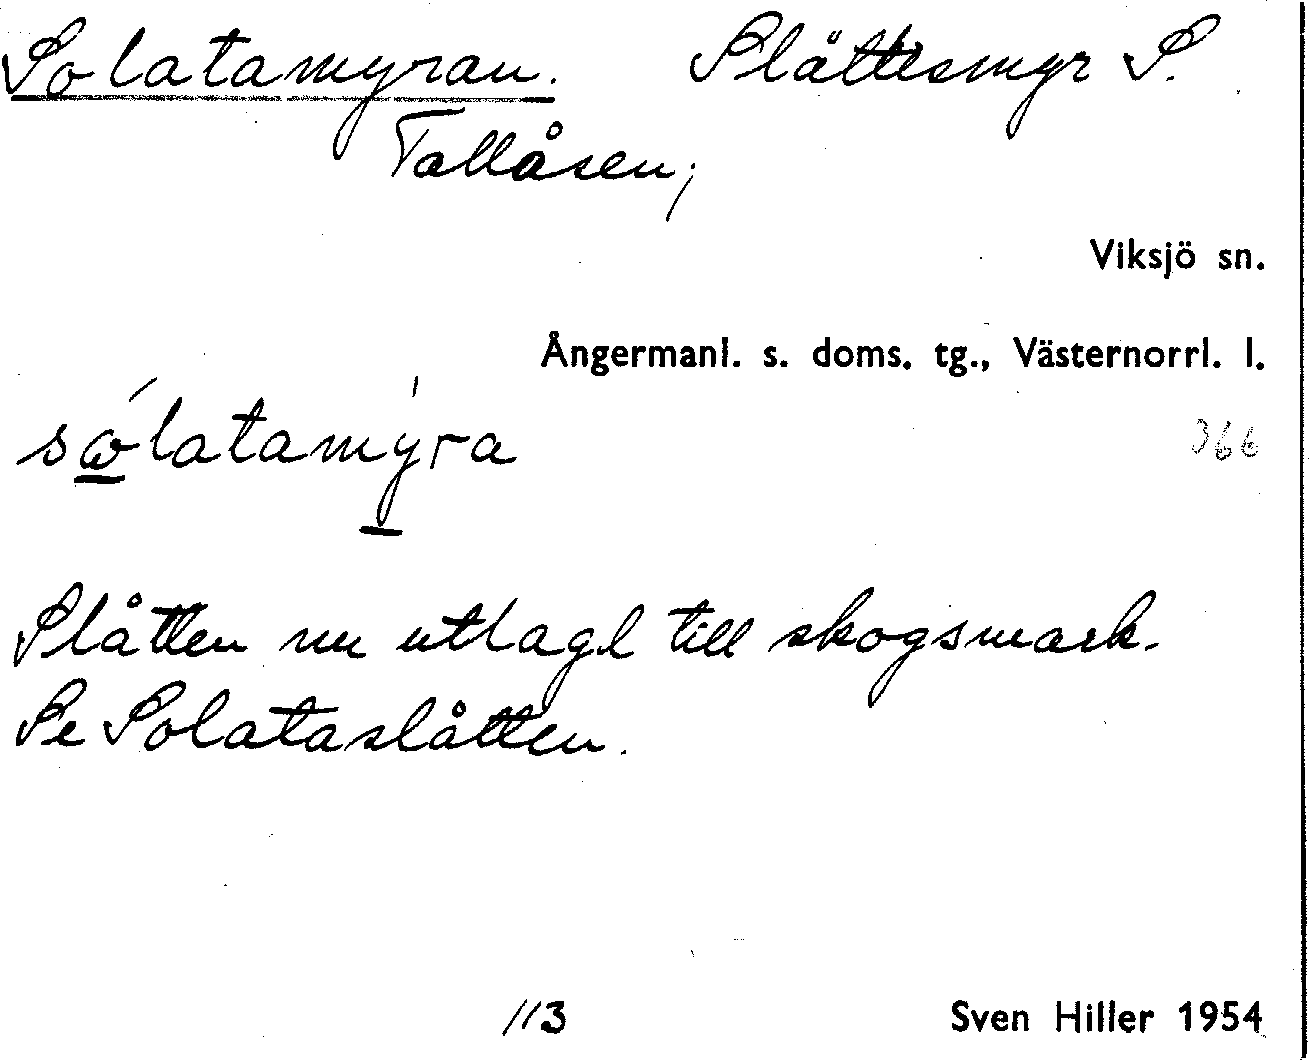 Solatamyran. Slåttesmyr S.
Tallåsen,
Viksjö sn.
Ångermanl. s. doms. tg., Västernorrl. l.
366
sωlatamyra
Slåtten nu utlagd till skogsmark.
Se Solataslåtten.
113
Sven Hiller 1954